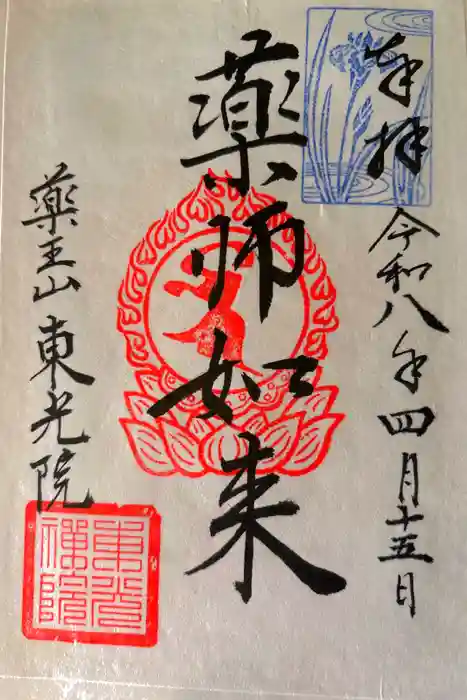 奉拝
令和八年四月十五日
薬師如来
薬王山東光院
東光禅院